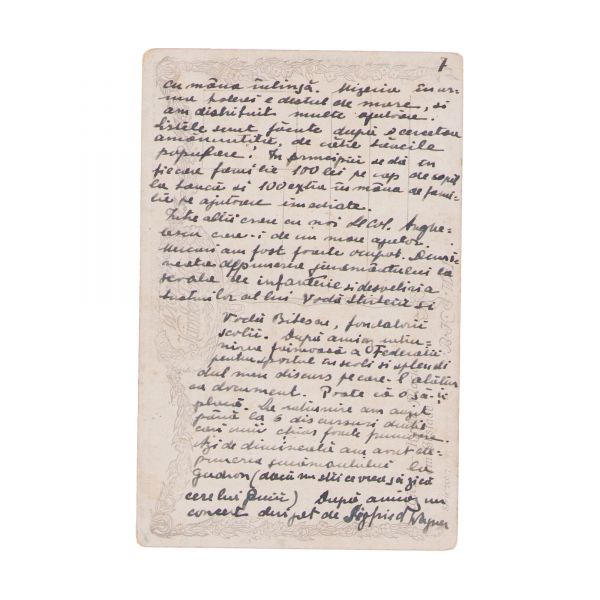 7
cu mâna întinsă. Mizeria în ur-
ma holerei e destul de mare, și
am distribuit multe ajutoare.
Listele sunt făcute după o cercetare
amănunțită, de către băncile
populare. În principiu se dă în
fiecare familie 100 lei pe cap de copil
la bancă și 100 extra în mâna de fami-
lie pe ajutoare imediate.
Între alții erau cu noi Lt Col. Anghe-
lescu care-i de un mare ajutor.
Miercuri am fost foarte ocupat. Dimi-
neața depunerea jurământului la
școala de infanterie și desvelirea
busturilor al lui Vodă Știrbei și
Vodă Bibescu, fondatorii
școlii. După amiaz întru-
nirea faimoasă a Federației
pentru sportul în școli și splendi-
dul meu discurs pe care-l alătur
ca document. Poate că o să-ți
placă. La întrunire am auzit
până la 6 discursuri dintre
cari unii chiar foarte frumoase.
Azi de dimineață am avut de-
punerea jurământului la
Gudron (dacă nu știi ce vrea să zică
cere lui Duiliu) După amiaz un
concert dirijat de Sigfried Wagner